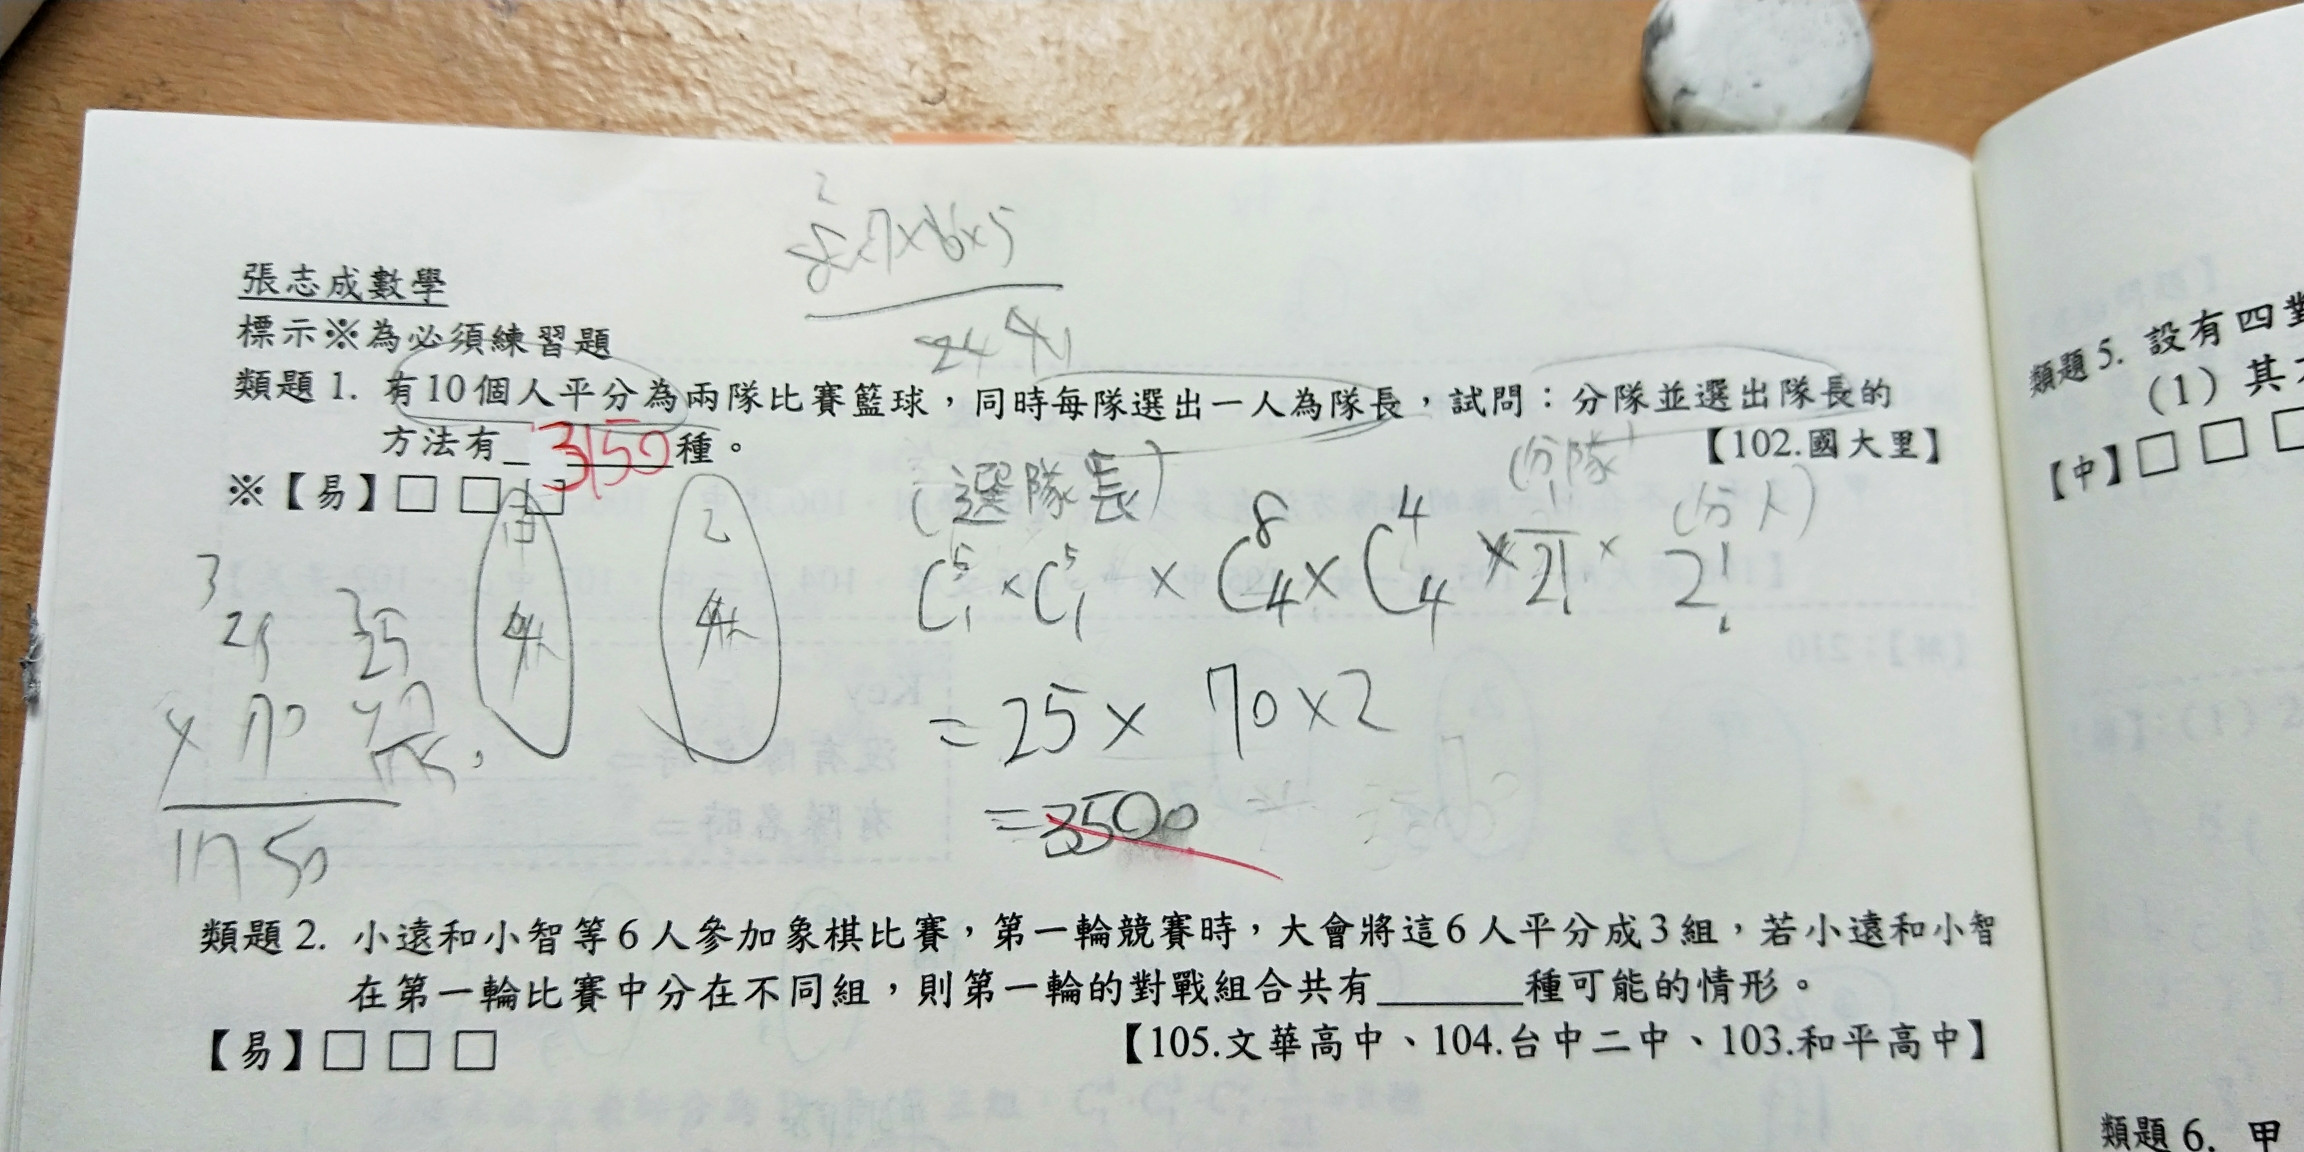 8×7×6×5
24
張志成數學
標示※為必須練習題
類題1. 有10個人平分為兩隊比賽籃球，同時每隊選出一人為隊長，試問：分隊並選出隊長的
方法有 3150 種。
【102.國大里】
※【易】□ □ □
(選隊長) (分隊) (分人)
甲 乙
C⁵₁×C⁵₁×C⁸₄×C⁴₄×1/2!×2!
=25×70×2
=3500
×70
1750
類題2. 小遠和小智等6人參加象棋比賽，第一輪競賽時，大會將這6人平分成3組，若小遠和小智
在第一輪比賽中分在不同組，則第一輪的對戰組合共有______種可能的情形。
【易】□ □ □
【105.文華高中、104.台中二中、103.和平高中】
類題5. 設有四
(1) 其
【中】□ □ □
類題6. 甲